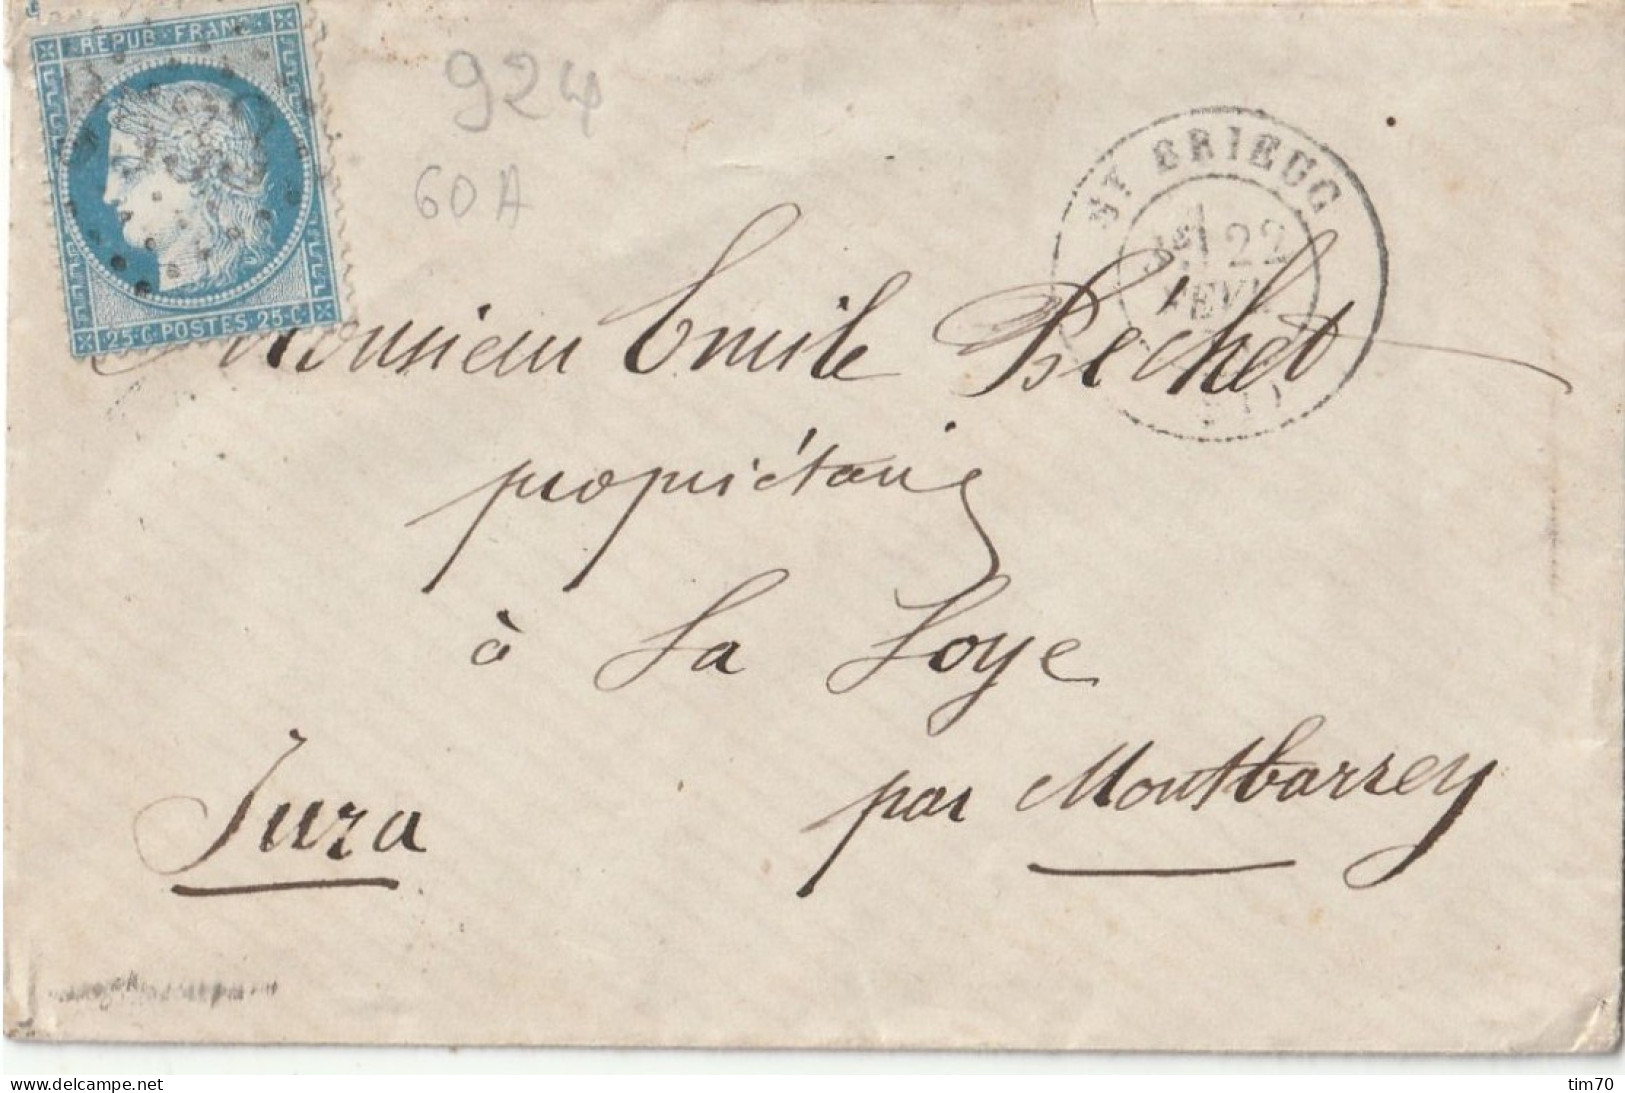 REPUB FRANC
25 C POSTES 25 C
924
60 A
ST BRIEUC
22
FEVR
Monsieur Emile Béchet
propriétaire
à La Loye
par Montbarrey
Jura
www.delcampe.net
tim70